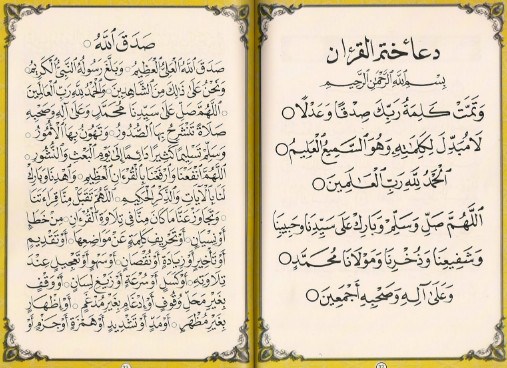 دعاء ختم القرءان
بِسْمِ ٱللَّهِ ٱلرَّحْمَٰنِ ٱلرَّحِيمِ
وَتَمَّتْ كَلِمَةُ رَبِّكَ صِدْقًا وَعَدْلًا ○
لَا مُبَدِّلَ لِكَلِمَٰتِهِ وَهُوَ ٱلسَّمِيعُ ٱلْعَلِيمُ ○
ٱلْحَمْدُ لِلَّهِ رَبِّ ٱلْعَٰلَمِينَ ○
اَللَّهُمَّ صَلِّ وَسَلِّمْ وَبَارِكْ عَلَى سَيِّدِنَا وَحَبِيبِنَا
وَشَفِيعِنَا وَذُخْرِنَا وَمَوْلَانَا مُحَمَّدٍ ○
وَعَلَىٰ آلِهِ وَصَحْبِهِ أَجْمَعِينَ ○
صَدَقَ ٱللَّهُ ○
صَدَقَ ٱللَّهُ الْعَلِيُّ الْعَظِيمُ ○ وَبَلَّغَ رَسُولُهُ النَّبِيُّ الْكَرِيمُ ○
وَنَحْنُ عَلَى ذَلِكَ مِنَ الشَّاهِدِينَ ○ وَالْحَمْدُ لِلَّهِ رَبِّ الْعَالَمِينَ
○ اَللَّهُمَّ صَلِّ عَلَى سَيِّدِنَا مُحَمَّدٍ وَعَلَى آلِهِ وَصَحْبِهِ
صَلَاةً تَنْشَرِحُ بِهَا الصُّدُورُ ○ وَتَهُونُ بِهَا الْأُمُورُ ○
وَسَلِّمْ تَسْلِيمًا كَثِيرًا دَائِمًا إِلَى يَوْمِ الْبَعْثِ وَالنُّشُورِ ○
اَللَّهُمَّ انْفَعْنَا وَارْفَعْنَا بِالْقُرْءَانِ الْعَظِيمِ ○ وَاهْدِنَا وَبَارِكْ
لَنَا بِالْآيَاتِ وَالذِّكْرِ الْحَكِيمِ ○ اَللَّهُمَّ تَقَبَّلْ مِنَّا قِرَاءَتَنَا
○ وَتَجَاوَزْ عَنَّا مَا كَانَ مِنَّا فِي تِلَاوَةِ الْقُرْءَانِ ○ مِنْ خَطَإٍ
أَوْ نِسْيَانٍ ○ أَوْ تَحْرِيفِ كَلِمَةٍ عَنْ مَوَاضِعِهَا ○ أَوْ تَقْدِيمٍ
أَوْ تَأْخِيرٍ أَوْ زِيَادَةٍ أَوْ نُقْصَانٍ ○ أَوْ سَهْوٍ أَوْ تَعْجِيلٍ عِنْدَ
تِلَاوَتِهِ ○ أَوْ كَسَلٍ أَوْ سُرْعَةٍ أَوْ زَيْغِ لِسَانٍ ○ أَوْ وَقْفٍ
بِغَيْرِ مَحَلِّ وُقُوفٍ أَوْ إِدْغَامٍ بِغَيْرِ مُدْغَمٍ ○ أَوْ إِظْهَارٍ
بِغَيْرِ مُظْهَرٍ ○ أَوْ مَدٍّ أَوْ تَشْدِيدٍ أَوْ هَمْزَةٍ أَوْ جَزْمٍ أَوْ